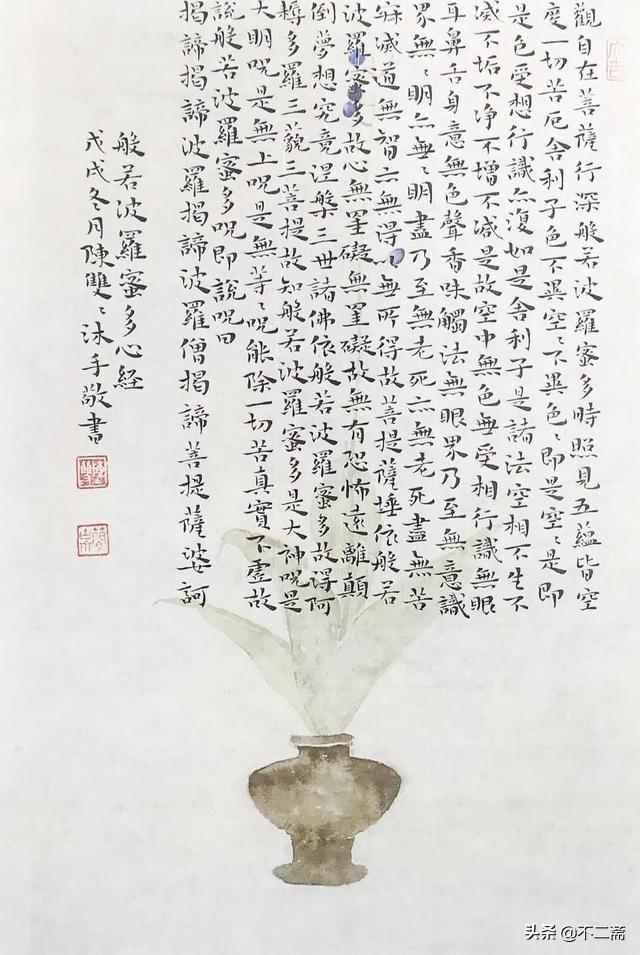 大吉
觀自在菩薩行深般若波羅蜜多時照見五蘊皆空
度一切苦厄舍利子色不異空〻不異色〻即是空〻是即
是色受想行識亦復如是舍利子是諸法空相不生不
滅不垢不淨不增不減是故空中無色無受相行識無眼
耳鼻舌身意無色聲香味觸法無眼界乃至無意識
界無〻明亦無〻明盡乃至無老死亦無老死盡無苦
滅道無智亦無得以無所得故菩提薩埵依般若
波羅蜜多故心無罣礙無罣礙故無有恐怖遠離顛
倒夢想究竟涅槃三世諸佛依般若波羅蜜多故得阿
耨多羅三藐三菩提故知般若波羅蜜多是大神咒是
大明咒是無上咒是無等〻咒能除一切苦真實不虛故
說般若波羅蜜多咒即說咒曰
揭諦揭諦波羅揭諦波羅僧揭諦菩提薩婆訶
般若波羅蜜多心經
戊戌冬月陳雙〻沐手敬書
头条 @不二斋